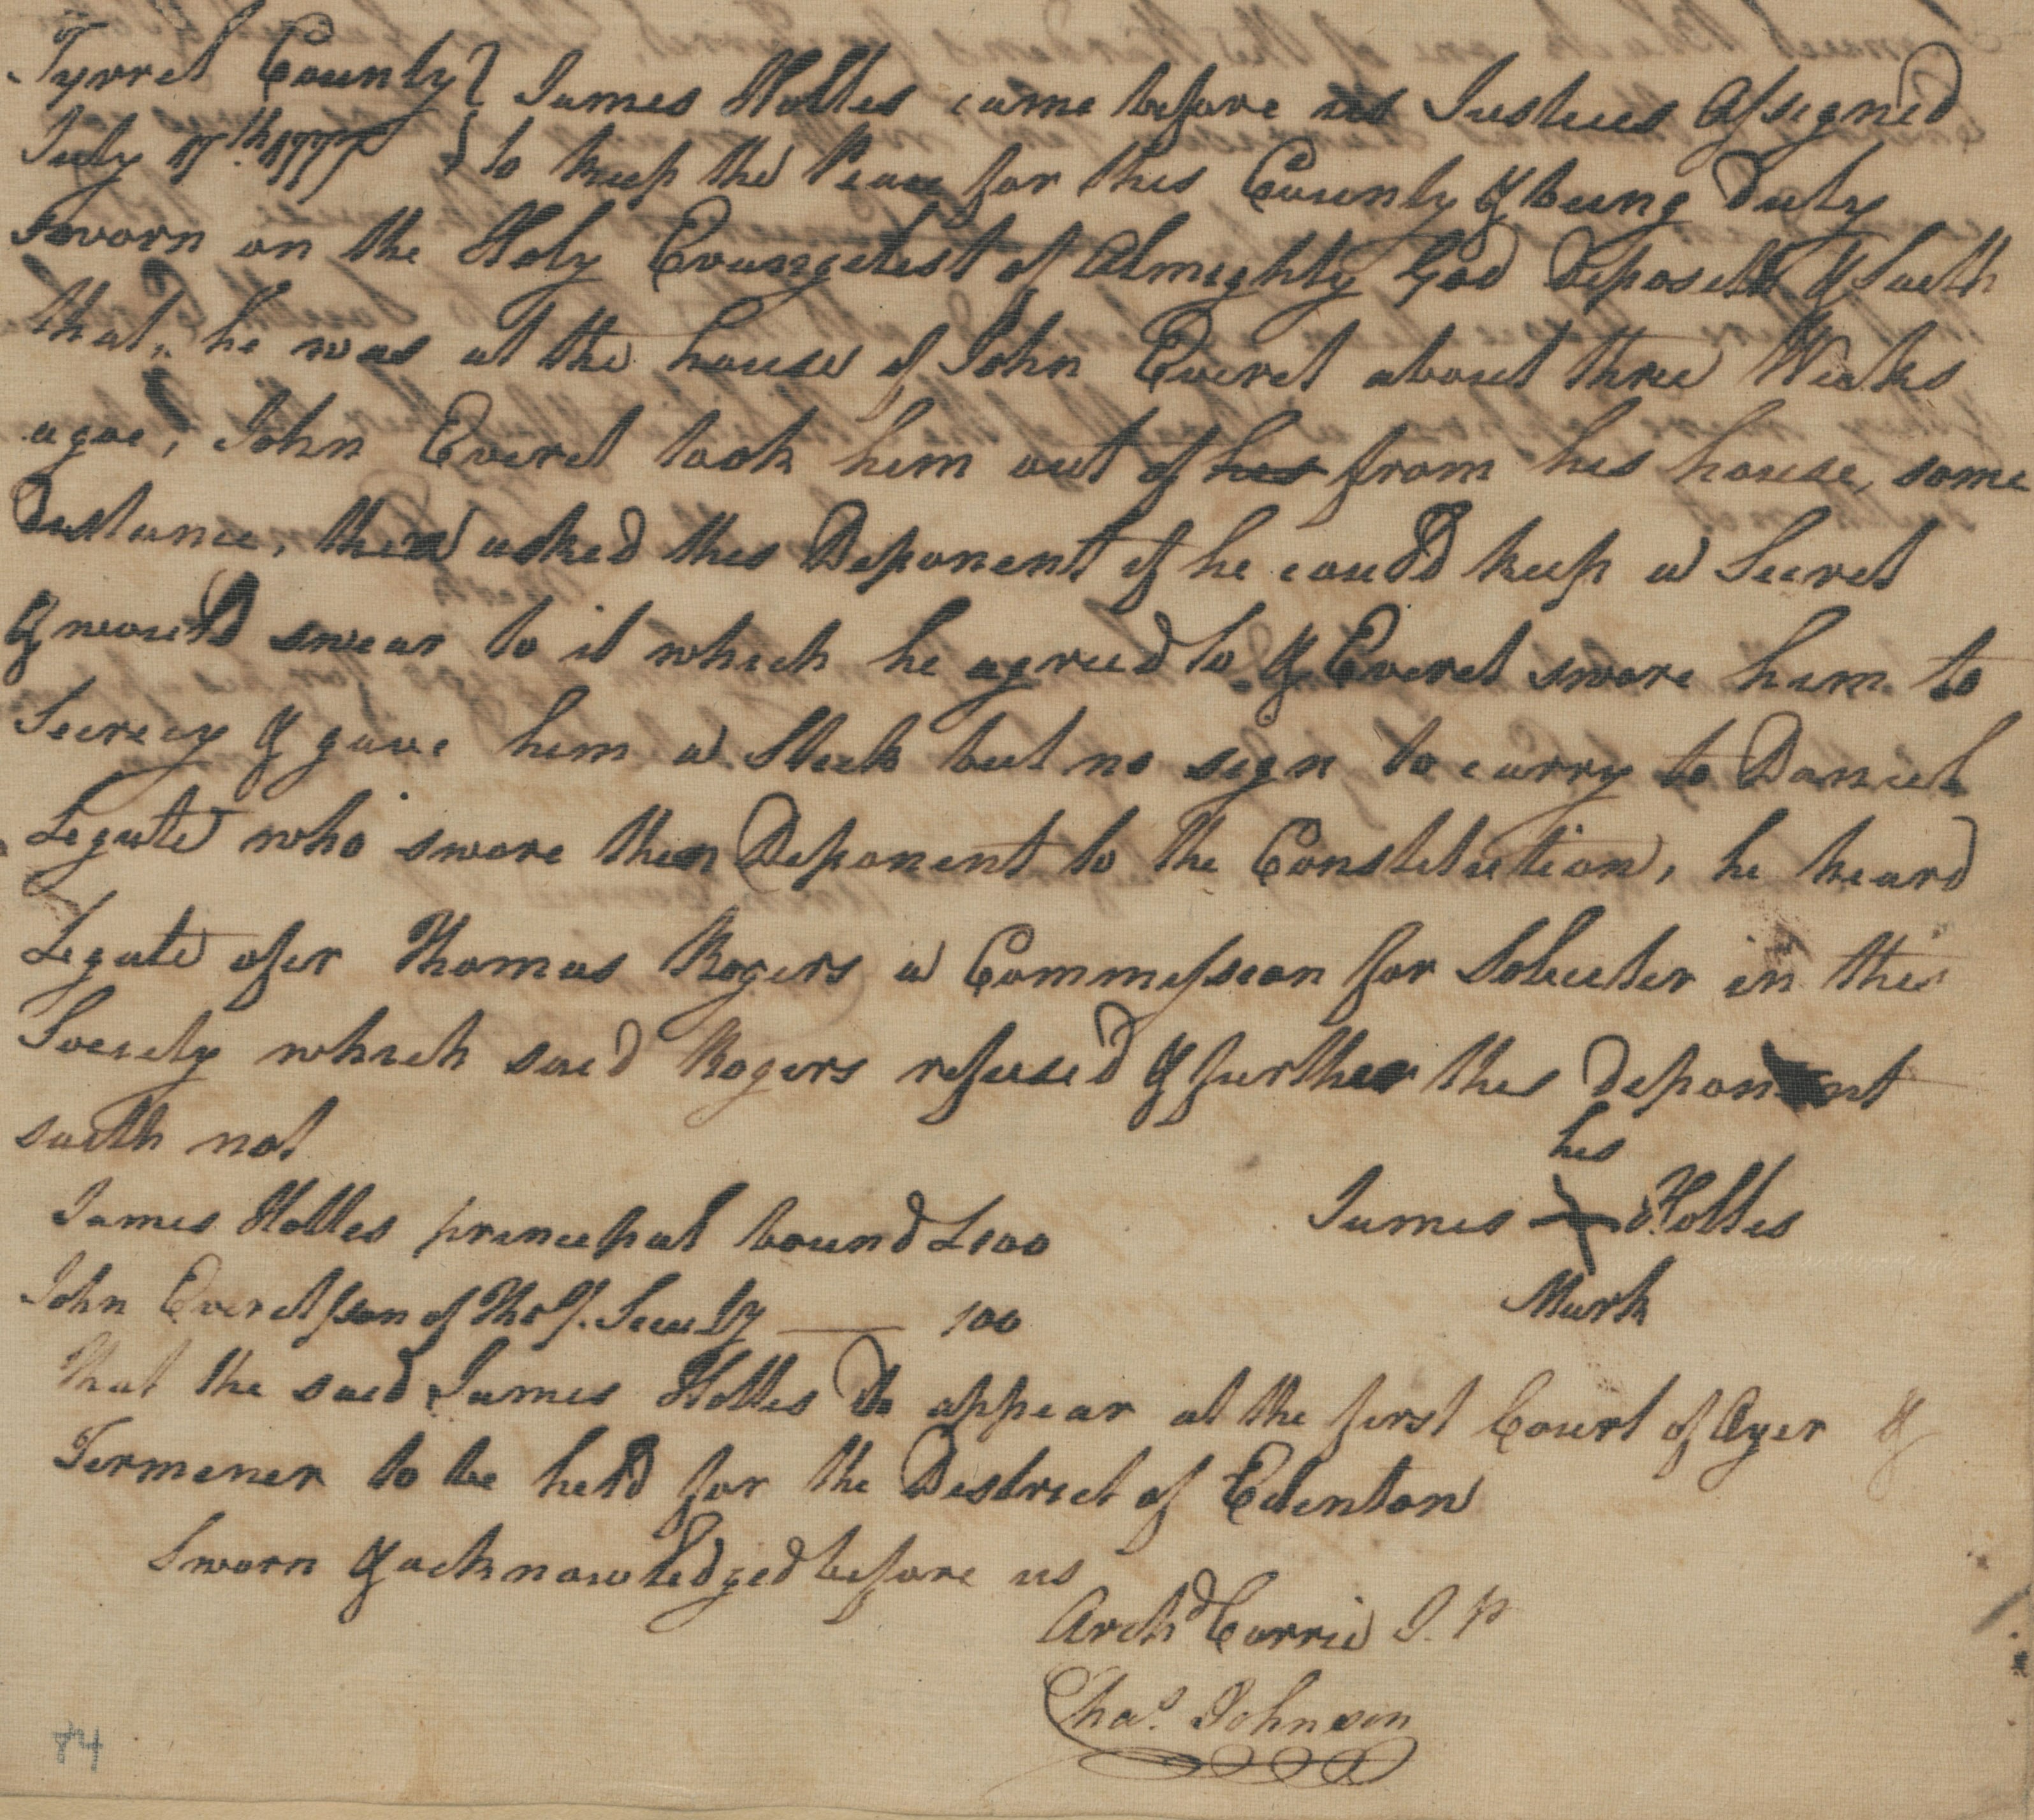 Tyrrel County } James Holles came before us Justices Assigned
July 17th 1777 } to keep the Peace for this County & being duly
sworn on the Holy Evangelist of Almighty God deposeth & saith
that, he was at the house of John Everet about three Weeks
agoe, John Everet took him out of his from his house, some
Distance, then asked this Deponent if he could keep a Secret
& would swear to it which he agreed to & Everet swore him to
Secrecy & gave him a Stick but no sign to carry to Daniel
Legate who swore then Deponent to the Constitution, he heard
Legate ofer Thomas Rogers a Commission for Soliciter in this
Society which said Rogers refused & further this deponent
saith not
his
James Holles principal bound £100 James X Holles
Mark
John Everet son of Thos. Security — 100
that the said James Holles to appear at the first Court of Oyer &
Terminer to be held for the District of Edenton
Sworn & acknowledged before us
Archd Corrie J. P
Chas. Johnson
74